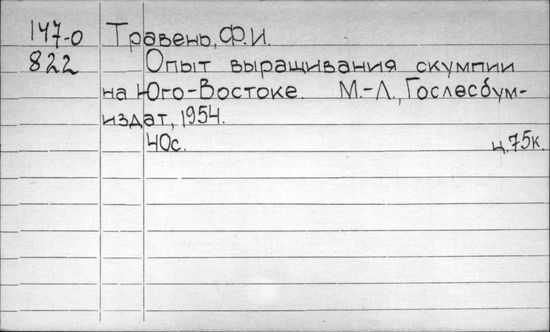 147-0 Травень, Ф.И.
822 Опыт выращивания скумпии
на Юго-Востоке. М.-Л., Гослесбум-
издат, 1954.
40с. ц. 75к.